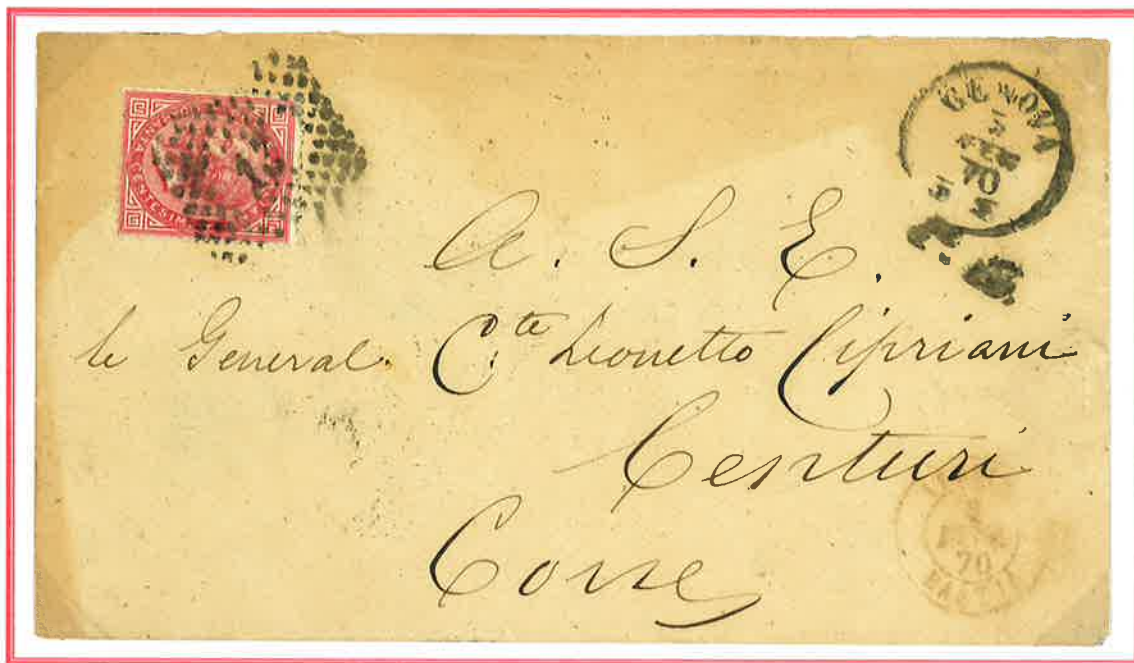 CENTESIMI
GENOVA
A. S. E.
le General. C.te Leonetto Cipriani
Centuri
Corse
70
BASTIA